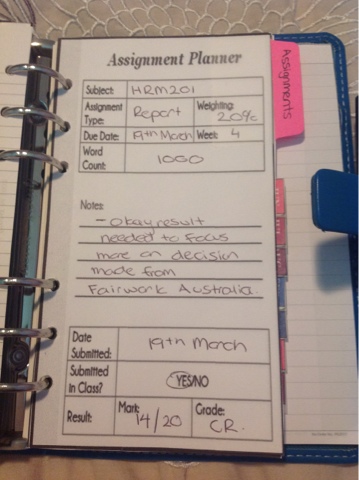 Assignment Planner
Assignments
Subject: HRM201
Assignment Type: Report Weighting: 20%
Due Date: 19th March Week: 4
Word Count: 1000
Notes:
- Okay result
needed to focus
more on decision
made from
Fairwork Australia.
Date Submitted: 19th March
Submitted In Class? YES/NO
Result: Mark: 14/20 Grade: CR.